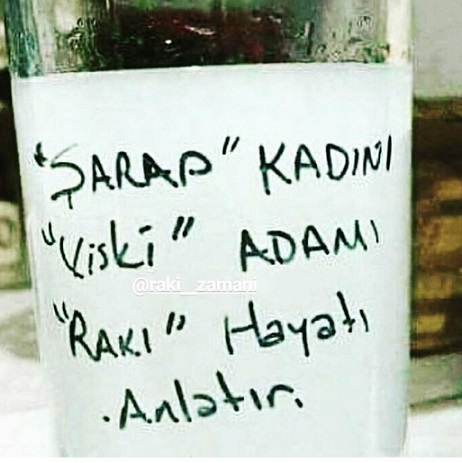 "ŞARAP" KADINI
"Viski" ADAMI
@raki__zamani
"RAKI" Hayatı
.Anlatır.